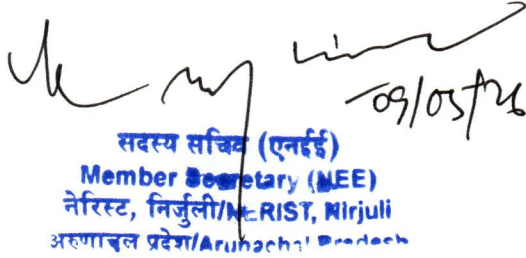 09/03/26
सदस्य सचिव (एनईई)
Member Secretary (NEE)
नेरिस्ट, निर्जुली/NERIST, Nirjuli
अरुणाचल प्रदेश/Arunachal Pradesh